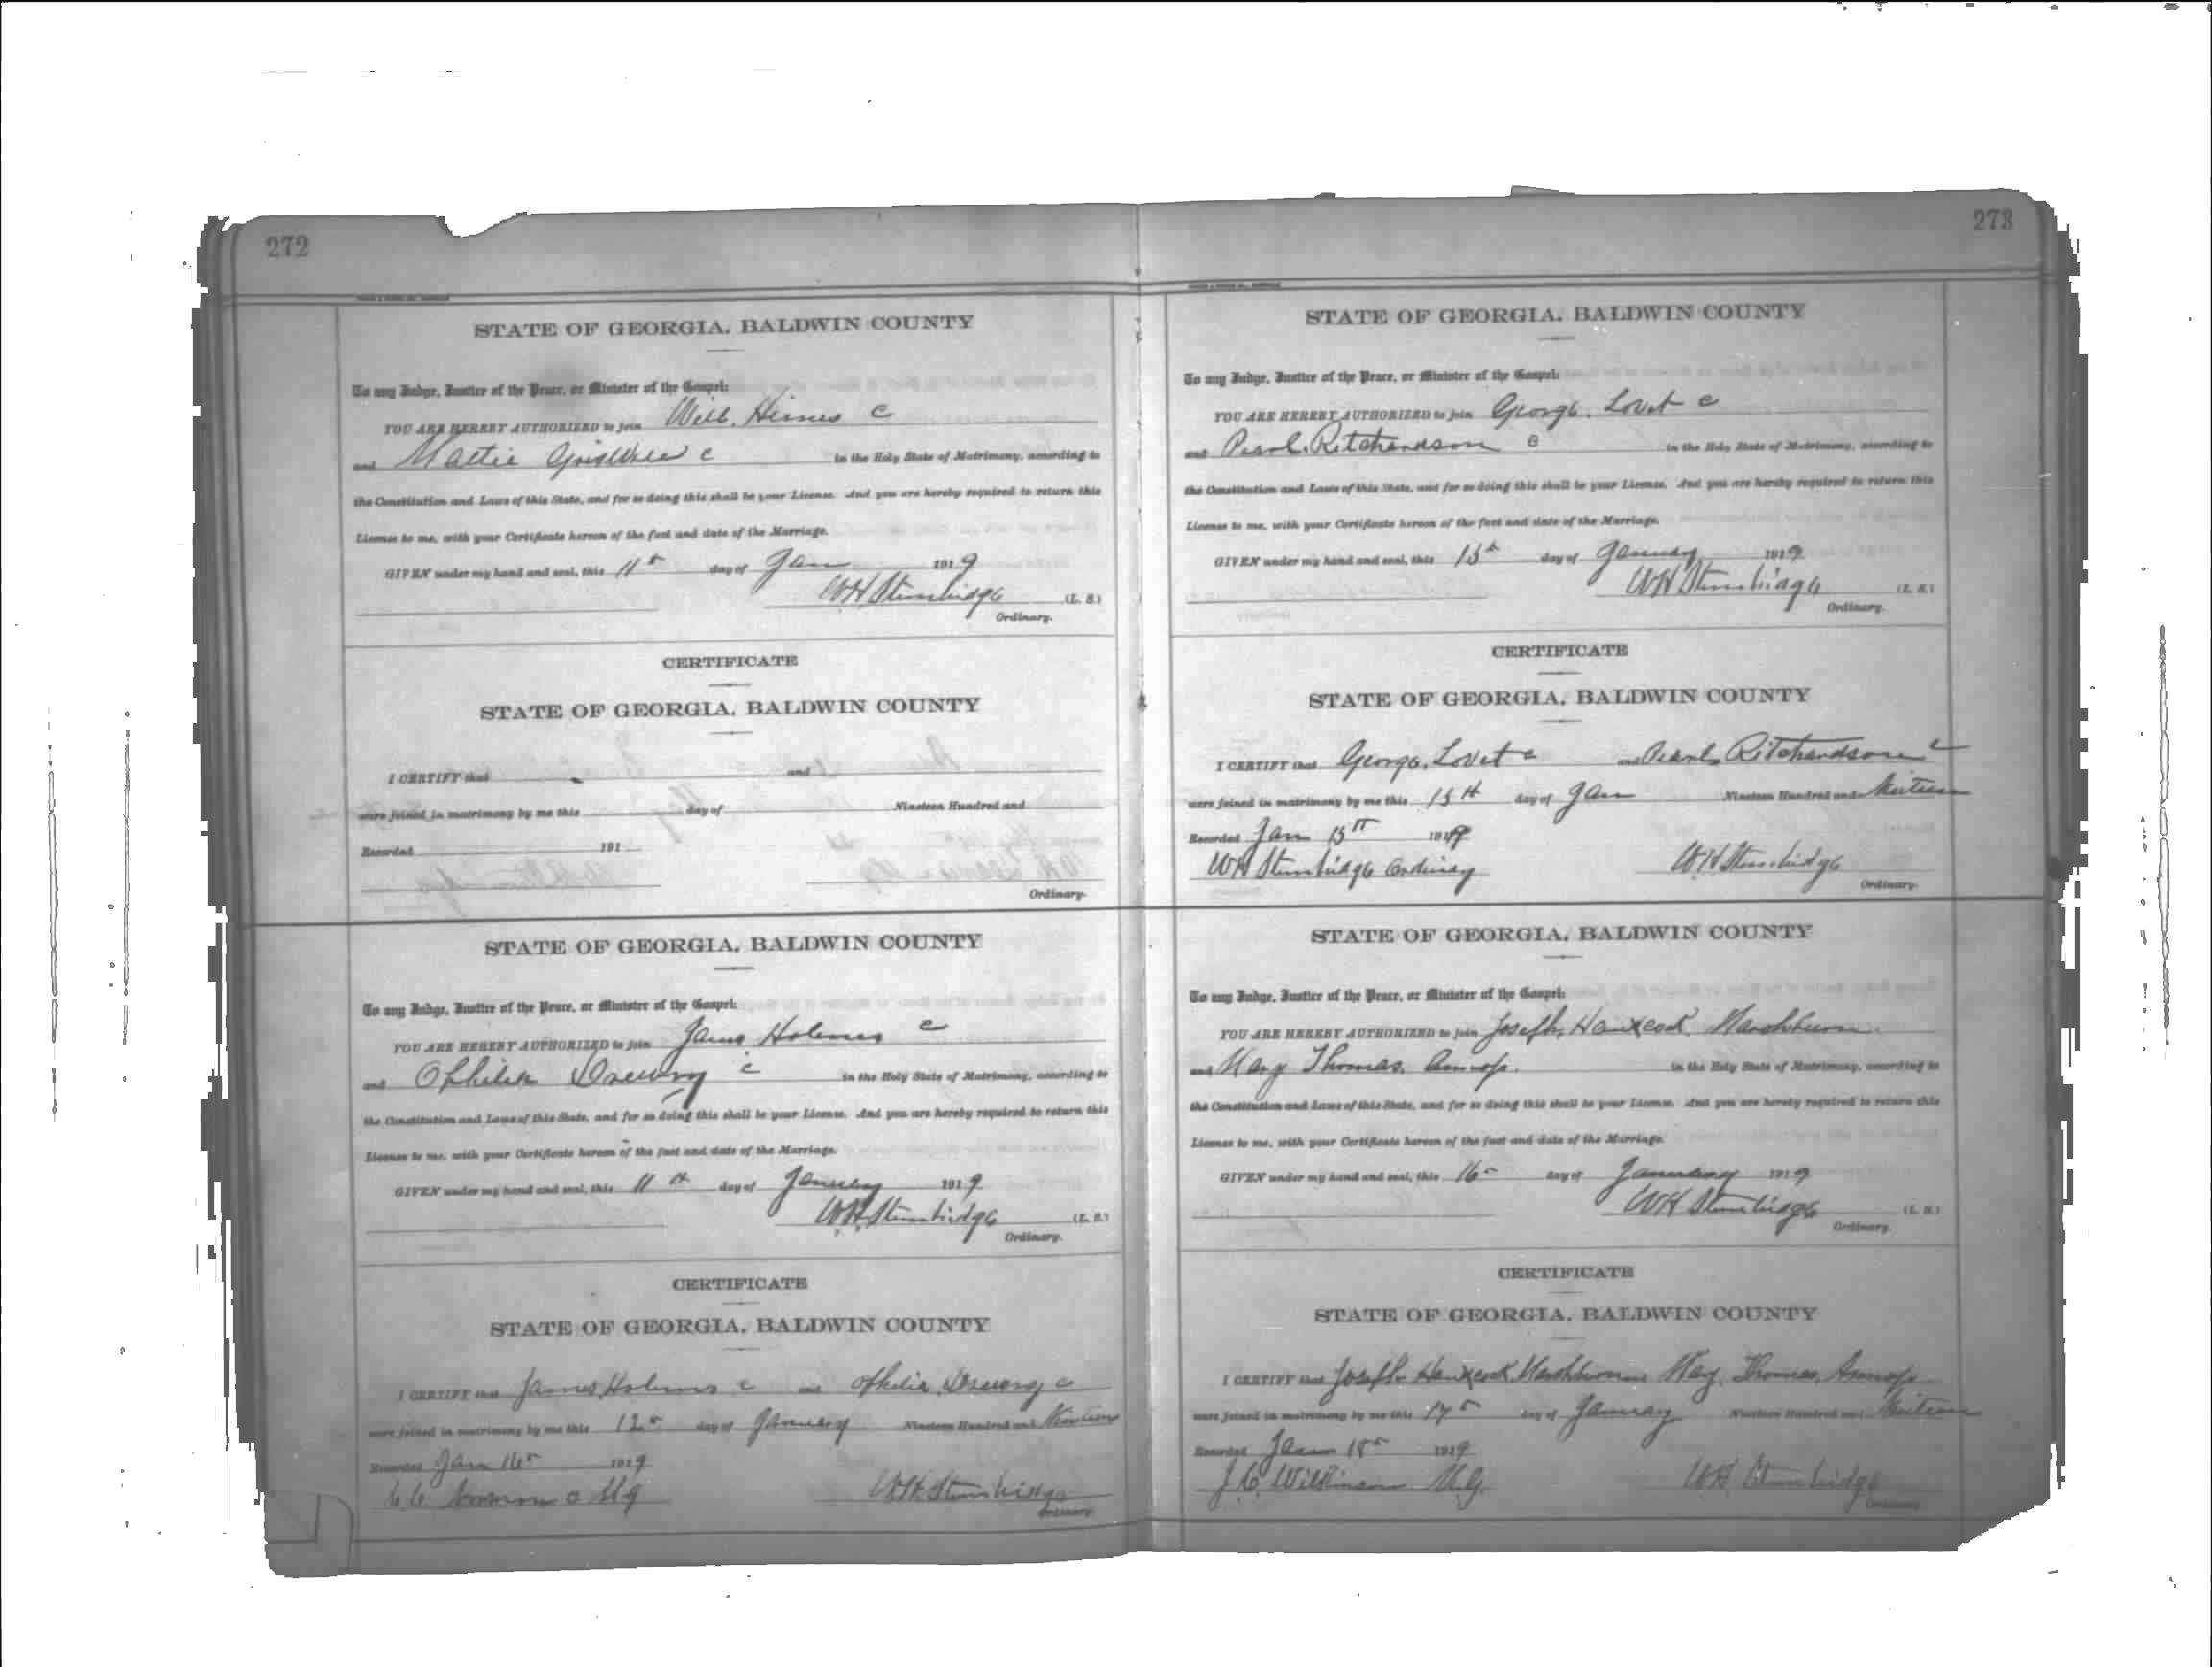 272
STATE OF GEORGIA, BALDWIN COUNTY
To any Judge, Justice of the Peace, or Minister of the Gospel:
YOU ARE HEREBY AUTHORIZED to join Will. Himes c
and Mattie c in the Holy State of Matrimony, according to
the Constitution and Laws of this State, and for so doing this shall be your License. And you are hereby required to return this
License to me, with your Certificate hereon of the fact and date of the Marriage.
GIVEN under my hand and seal, this 11th day of Jan 1919
WH Stembridge (L. S.)
Ordinary.
CERTIFICATE
STATE OF GEORGIA, BALDWIN COUNTY
I CERTIFY that and
were joined in matrimony by me this day of Nineteen Hundred and
Recorded 191
Ordinary.
STATE OF GEORGIA, BALDWIN COUNTY
To any Judge, Justice of the Peace, or Minister of the Gospel:
YOU ARE HEREBY AUTHORIZED to join James Holmes c
and Ophilia Drewry c in the Holy State of Matrimony, according to
the Constitution and Laws of this State, and for so doing this shall be your License. And you are hereby required to return this
License to me, with your Certificate hereon of the fact and date of the Marriage.
GIVEN under my hand and seal, this 11th day of January 1919
WH Stembridge (L. S.)
Ordinary.
CERTIFICATE
STATE OF GEORGIA, BALDWIN COUNTY
I CERTIFY that James Holmes c and Ophelia Drewry c
were joined in matrimony by me this 12th day of January Nineteen Hundred and Nineteen
Recorded Jan 16th 1919
MG WH Stembridge
Ordinary.
273
STATE OF GEORGIA, BALDWIN COUNTY
To any Judge, Justice of the Peace, or Minister of the Gospel:
YOU ARE HEREBY AUTHORIZED to join George Lovet c
and Pearl Ritchardson c in the Holy State of Matrimony, according to
the Constitution and Laws of this State, and for so doing this shall be your License. And you are hereby required to return this
License to me, with your Certificate hereon of the fact and date of the Marriage.
GIVEN under my hand and seal, this 15th day of January 1919
WH Stembridge (L. S.)
Ordinary.
CERTIFICATE
STATE OF GEORGIA, BALDWIN COUNTY
I CERTIFY that George Lovet c and Pearl Ritchardson c
were joined in matrimony by me this 15th day of Jan Nineteen Hundred and Nineteen
Recorded Jan 15th 1919
WH Stembridge Ordinary WH Stembridge
Ordinary.
STATE OF GEORGIA, BALDWIN COUNTY
To any Judge, Justice of the Peace, or Minister of the Gospel:
YOU ARE HEREBY AUTHORIZED to join Joseph Hancock Marshburn
and Mary Thomas in the Holy State of Matrimony, according to
the Constitution and Laws of this State, and for so doing this shall be your License. And you are hereby required to return this
License to me, with your Certificate hereon of the fact and date of the Marriage.
GIVEN under my hand and seal, this 16th day of January 1919
WH Stembridge (L. S.)
Ordinary.
CERTIFICATE
STATE OF GEORGIA, BALDWIN COUNTY
I CERTIFY that Joseph Hancock Marshburn Mary Thomas
were joined in matrimony by me this 17th day of January Nineteen Hundred and Nineteen
Recorded Jan 18th 1919
J.C. Wilkinson M.G. WH Stembridge
Ordinary